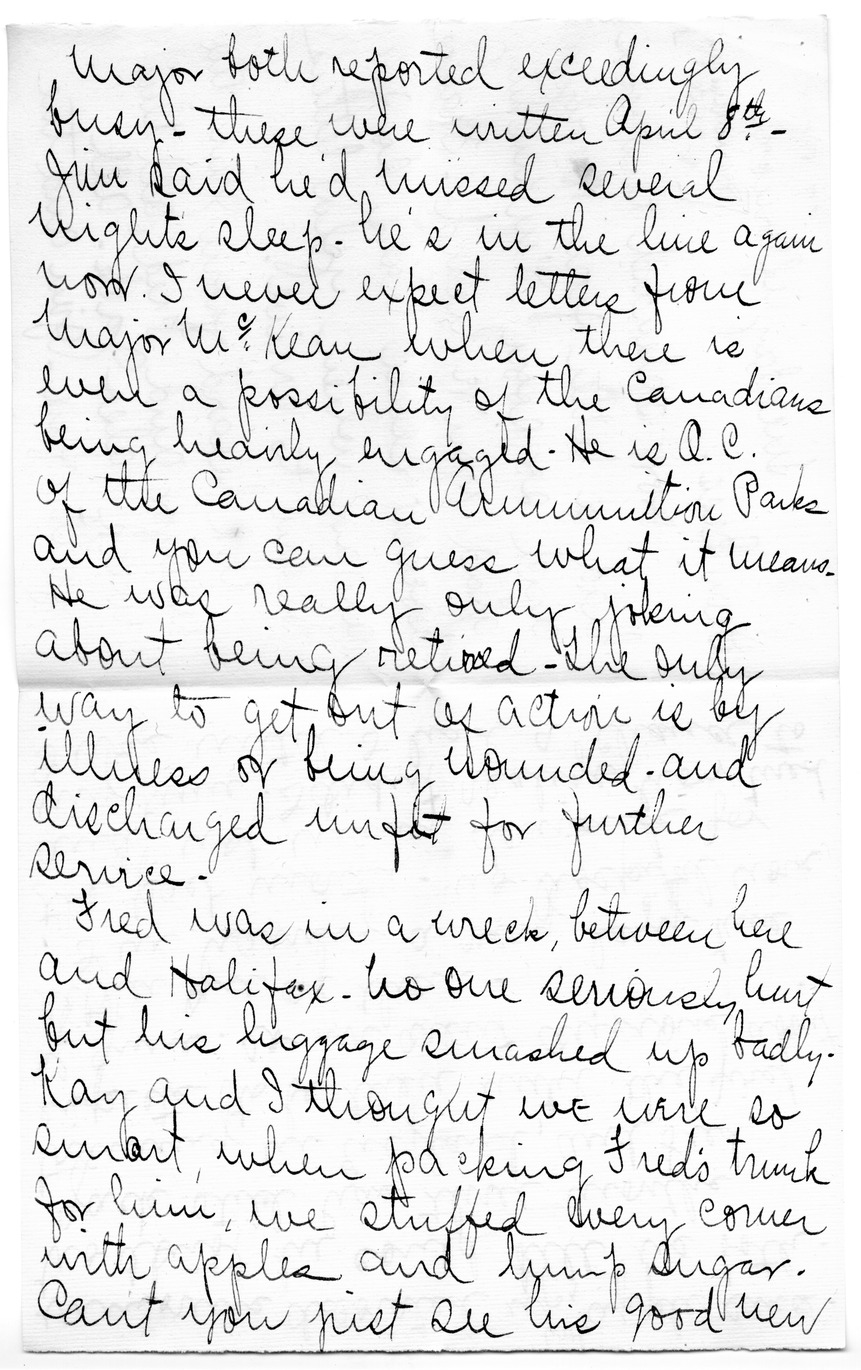 Major both reported exceedingly
busy - these were written April 8th. -
Jim said he'd missed several
nights sleep - he's in the line again
now. I never expect letters from
Major Mc. Kean when there is
even a possibility of the Canadians
being heavily engaged - He is O.C.
of the Canadian Ammunition Parks
and you can guess what it means.
He was really only joking
about being retired - The only
way to get out of action is by
illness or being wounded - and
discharged unfit for further
service -
Fred was in a wreck, between here
and Halifax - no one seriously hurt
but his luggage smashed up badly -
Kay and I thought we were so
smart, when packing Fred's trunk
for him, we stuffed every corner
with apples and lump sugar.
Cant you just see his good new